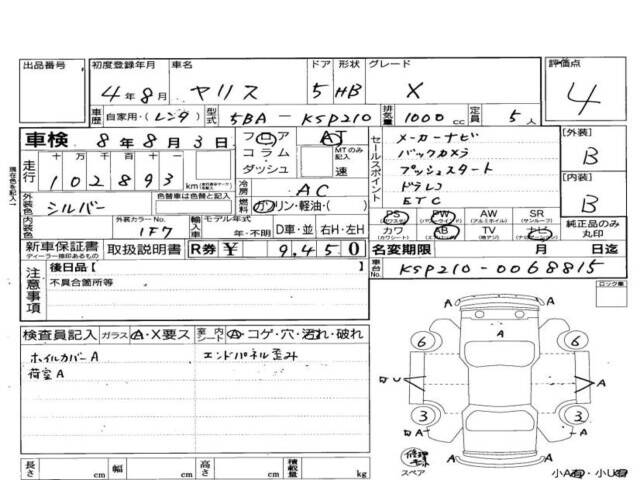 出品番号
初度登録年月 車名 ドア 形状 グレード 評価点
4年8月 ヤリス 5 HB X 4
車歴 自家用・(レンタ) 型式 5BA-KSP210 排気量 1000cc 定員 5人
車検 8年8月3日
フロア AT
コラム・ MTのみ記入
ダッシュ 速
セールスポイント
メーカーナビ
バックカメラ
プッシュスタート
ドラレコ
ETC
[外装]
B
[内装]
B
走行 十 万 千 百 十 一
102893 km
冷房 AC
外装色 シルバー 色替車は色替と記入
燃料 ガソリン・軽油・( )
内装色 外装カラーNo. 1F7
輸入車 モデル年式 年・不明 D車・並 右H・左H
PS PW AW SR
(パワステ) (パワーウインド) (アルミホイル) (サンルーフ)
カワ AB TV ナビ
(カワシート) (エアバッグ) (地アジ)
純正品のみ丸印
新車保証書 取扱説明書 R券 ¥ 9,450
ディーラー捺印あるもの
名変期限 月 日迄
車台No. KSP210-0068815
現在色を記入
注意事項
後日品[ ]
不具合箇所等
ロック車
検査員記入 ガラス A・X要ス 室内シート A・コゲ・穴・汚れ・破れ
ホイルカバーA エンドパネル歪み
荷室A
A
6 6
A A A
A
3 3
A A
修理キット
スペア
A
小A有・小U有
長さ cm 幅 cm 高さ cm 積載量 kg